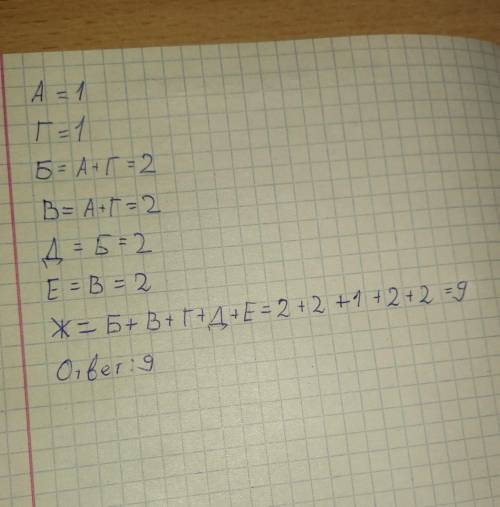 А = 1
Г = 1
Б = А+Г = 2
В = А+Г = 2
Д = Б = 2
Е = В = 2
Ж = Б+В+Г+Д+Е = 2+2+1+2+2 = 9
Ответ: 9